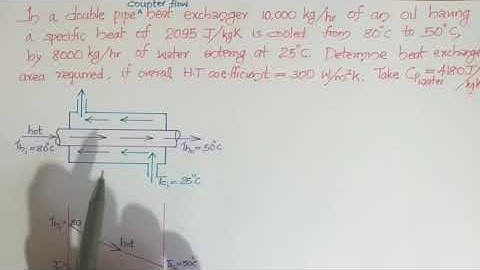 counter flow
In a double pipe heat exchanger 10,000 kg/hr of an oil having
a specific heat of 2095 J/kgK is cooled from 80°C to 50°C,
by 8000 kg/hr of water entering at 25°C. Determine heat exchanger
area required, if overall H.T coefficient = 300 W/m²K. Take Cp water = 4180 J/kgK
hot
Th₁=80°C
Th₂=50°C
Tc₁=25°C
Th₁=80
hot
Th₂=50°C